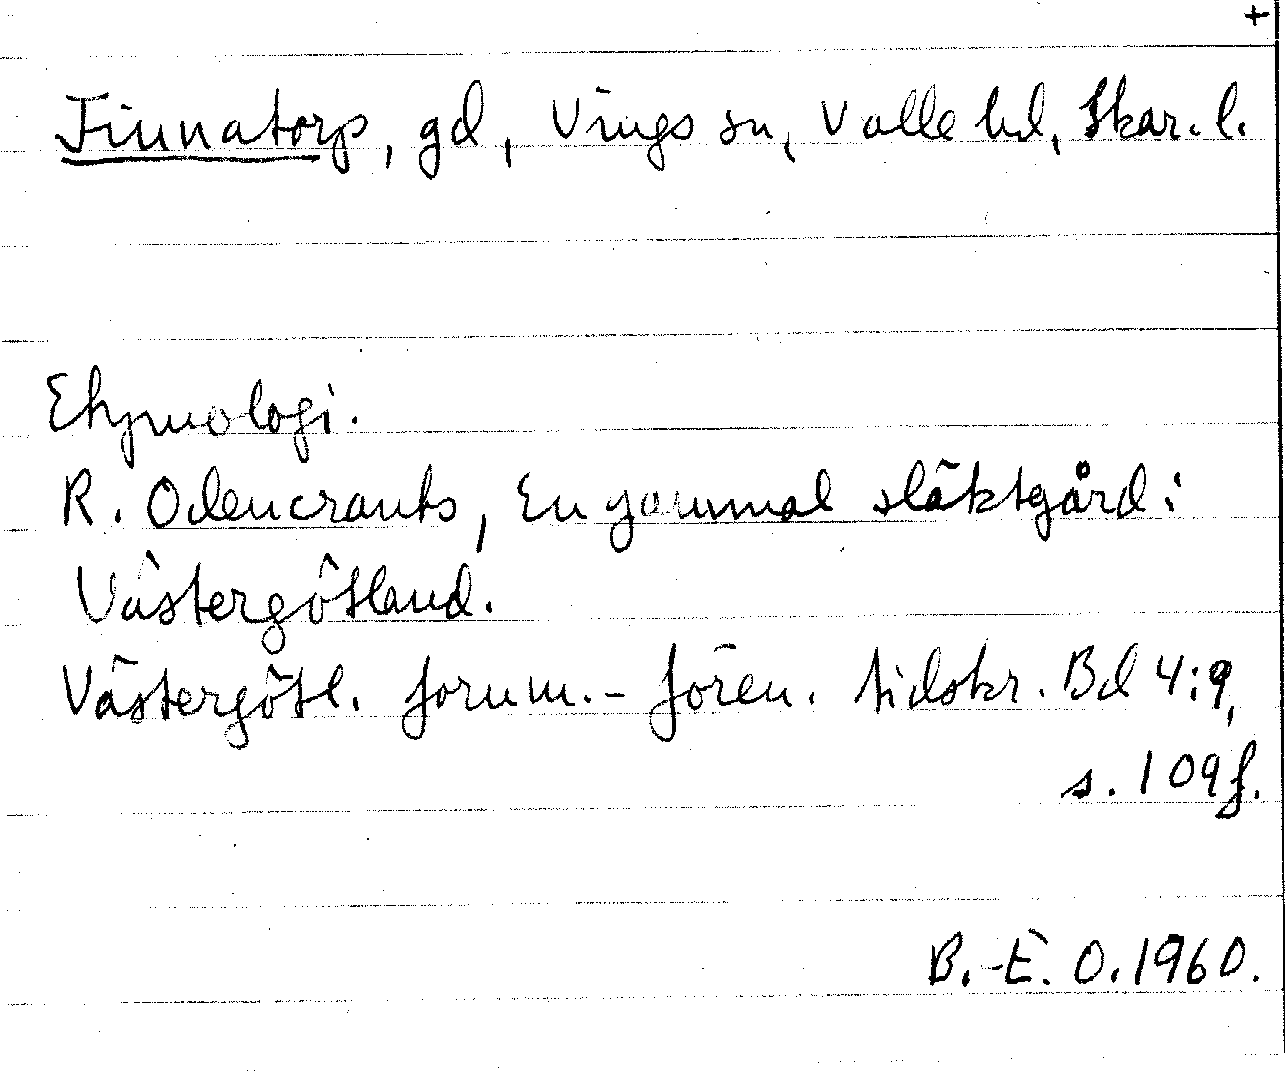 +
Finnatorp, gd, Vings sn, Valle hd, Skar. l.
Etymologi.
R. Odencrants, En gammal släktgård i
Västergötland.
Västergötl. fornm.- fören. tidskr. Bd 4:9,
s. 109f.
B.-E. O. 1960.